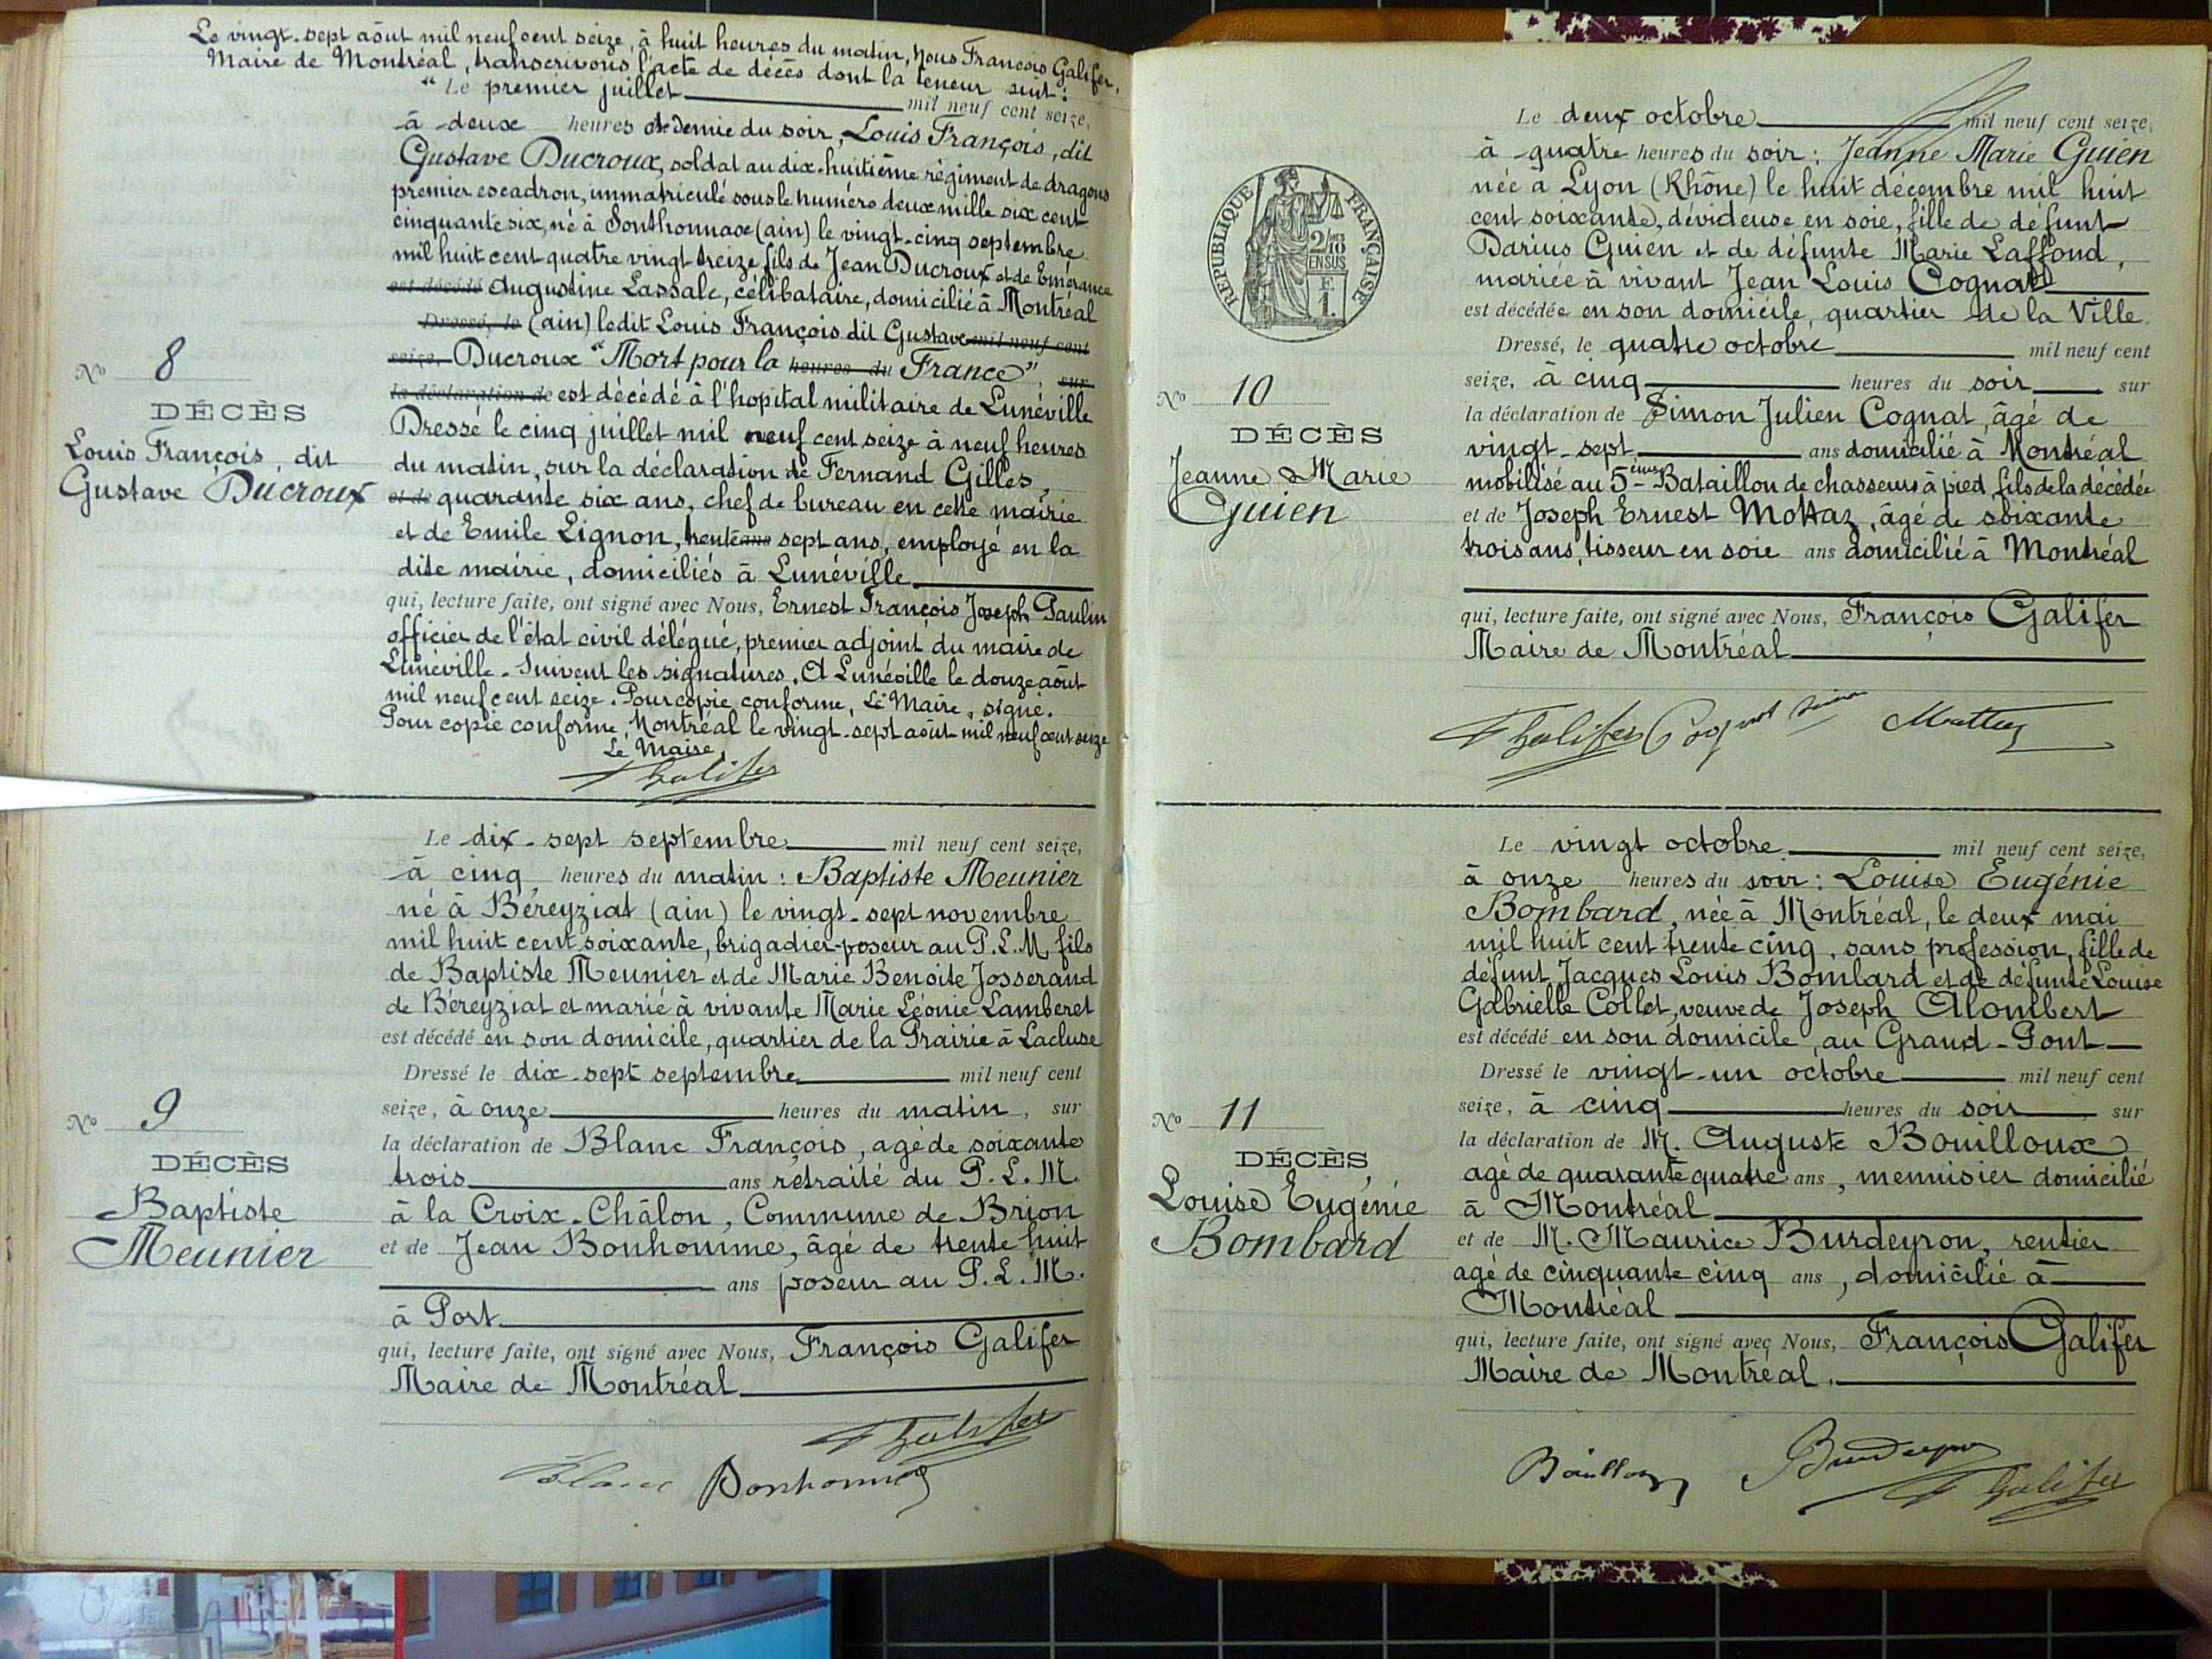 Le vingt-sept août mil neuf cent seize, à huit heures du matin, Nous François Galifer,
Maire de Montréal, transcrivons l'acte de décès dont la teneur suit:
"Le premier juillet mil neuf cent seize,
à deux heures et demie du soir, Louis François, dit
Gustave Ducroux, soldat au dix-huitième régiment de dragons
premier escadron, immatriculé sous le numéro deux mille six cent
cinquante six, né à Sonthonnax (ain) le vingt-cinq septembre
mil huit cent quatre vingt treize fils de Jean Ducroux et de Emérance
est décédé Augustine Lassale, célibataire, domicilié à Montréal
Dressé, le (ain) ledit Louis François dit Gustave mil neuf cent
seize, Ducroux "Mort pour la heures du France", sur
la déclaration de est décédé à l'hopital militaire de Lunéville
Dressé le cinq juillet mil neuf cent seize à neuf heures
du matin, sur la déclaration de Fernand Gilles,
et de quarante six ans, chef de bureau en cette mairie
et de Emile Lignon, trente ans sept ans, employé en la
dite mairie, domiciliés à Lunéville
qui, lecture faite, ont signé avec Nous, Ernest François Joseph Paulin
officier de l'état civil délégué, premier adjoint du maire de
Lunéville. Suivent les signatures. A Lunéville le douze août
mil neuf cent seize. Pour copie conforme, Le Maire, signé.
Pour copie conforme, Montréal le vingt-sept août mil neuf cent seize
Le Maire,
F Galifer
No 8
DÉCÈS
Louis François, dit
Gustave Ducroux
Le dix-sept septembre mil neuf cent seize,
à cinq heures du matin: Baptiste Meunier
né à Béreyziat (ain) le vingt-sept novembre
mil huit cent soixante, brigadier-poseur au P.L.M, fils
de Baptiste Meunier et de Marie Benoite Josserand
de Béreyziat et marié à vivante Marie Léonie Lamberet
est décédé en son domicile, quartier de la Prairie à Lacluse
Dressé le dix-sept septembre mil neuf cent
seize, à onze heures du matin, sur
la déclaration de Blanc François, agé de soixante
trois ans retraité du P.L.M.
à la Croix-Châlon, Commune de Brion
et de Jean Bonhomme, âgé de trente huit
ans poseur au P.L.M.
à Port
qui, lecture faite, ont signé avec Nous, François Galifer
Maire de Montréal
F Galifer
Blanc Bonhomme
No 9
DÉCÈS
Baptiste
Meunier
RÉPUBLIQUE FRANÇAISE
2/10
EN SUS
F.
1.
Le deux octobre mil neuf cent seize,
à quatre heures du soir: Jeanne Marie Guien
née à Lyon (Rhône) le huit décembre mil huit
cent soixante, dévideuse en soie, fille de défunt
Darius Guien et de défunte Marie Laffond,
mariée à vivant Jean Louis Cognat
est décédée en son domicile, quartier de la Ville.
Dressé, le quatre octobre mil neuf cent
seize, à cinq heures du soir sur
la déclaration de Simon Julien Cognat, âgé de
vingt-sept ans domicilié à Montréal
mobilisé au 5ème Bataillon de chasseurs à pied fils de la décédée
et de Joseph Ernest Mottaz, âgé de soixante
trois ans, tisseur en soie ans domicilié à Montréal
qui, lecture faite, ont signé avec Nous, François Galifer
Maire de Montréal
F Galifer Cognat
No 10
DÉCÈS
Jeanne Marie
Guien
Le vingt octobre mil neuf cent seize,
à onze heures du soir: Louise Eugénie
Bombard, née à Montréal, le deux mai
mil huit cent trente cinq, sans profession, fille de
défunt Jacques Louis Bombard et de défunte Louise
Gabrielle Collet, veuve de Joseph Alombert
est décédé en son domicile, au Grand-Pont
Dressé le vingt-un octobre mil neuf cent
seize, à cinq heures du soir sur
la déclaration de M. Auguste Bouilloux
agé de quarante quatre ans, menuisier domicilié
à Montréal
et de M. Maurice Burdeyron, rentier
agé de cinquante cinq ans, domicilié à
Montréal
qui, lecture faite, ont signé avec Nous, François Galifer
Maire de Montréal.
F Galifer
No 11
DÉCÈS
Louise Eugénie
Bombard